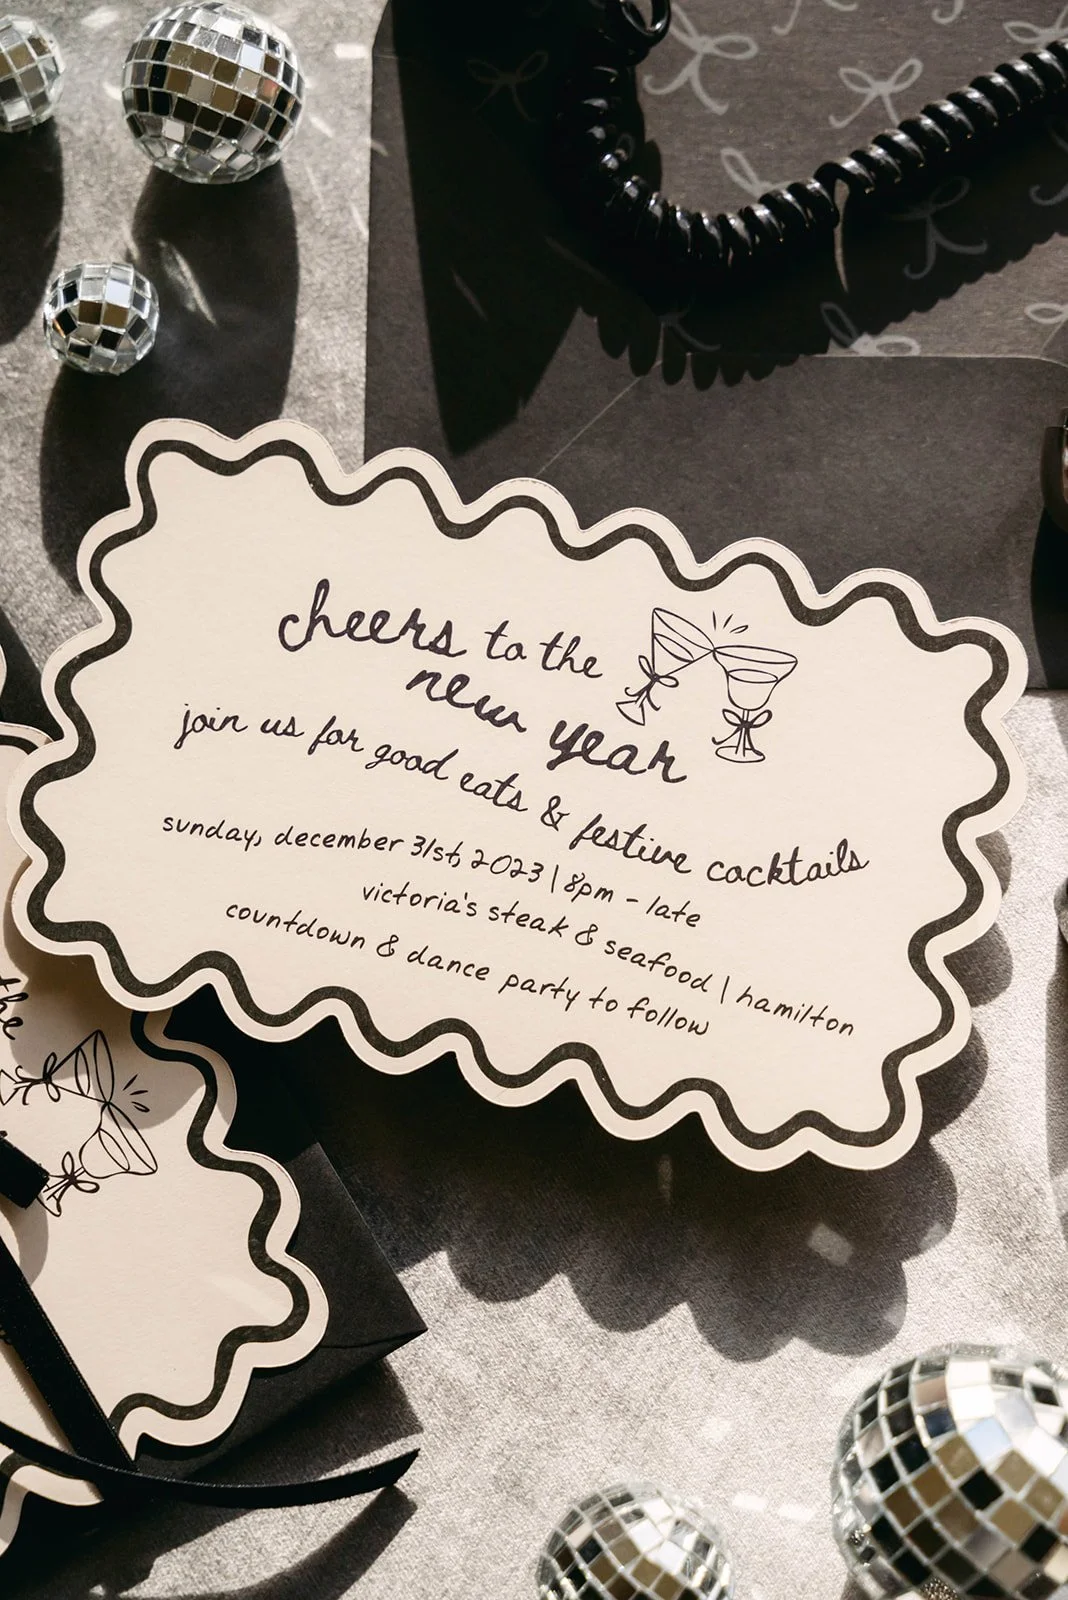 cheers to the
new year
join us for good eats & festive cocktails
sunday, december 31st, 2023 | 8pm - late
victoria's steak & seafood | hamilton
countdown & dance party to follow
the